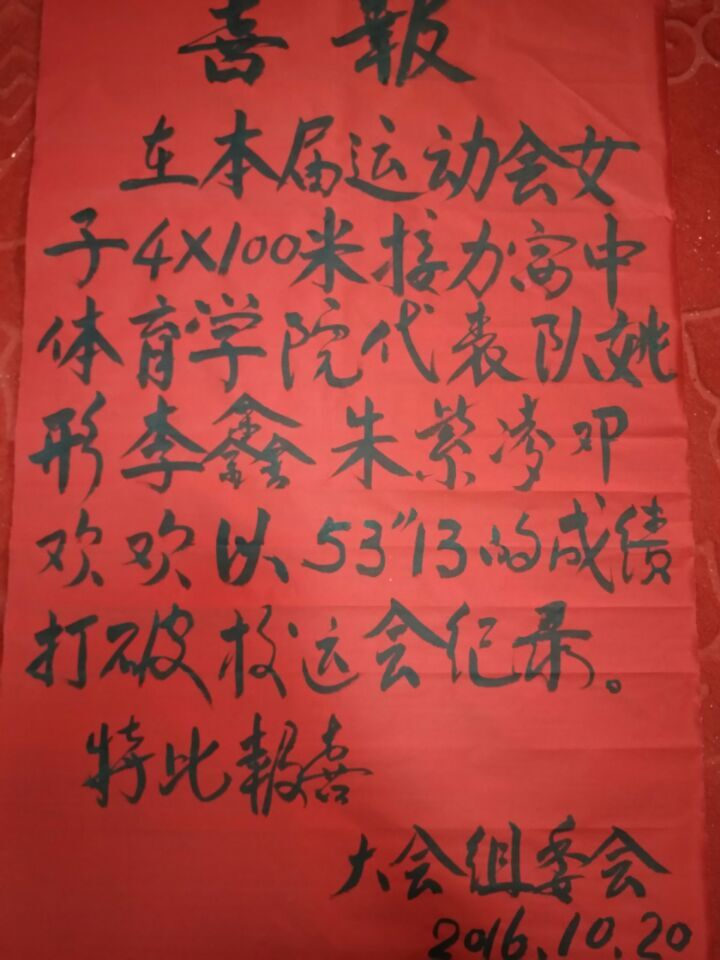 喜報
在本届运动会女
子4X100米接力赛中
体育学院代表队姚
形李鑫朱紫凌邓
欢欢以53"13的成绩
打破校运会纪录。
特此報喜
大会组委会
2016.10.20